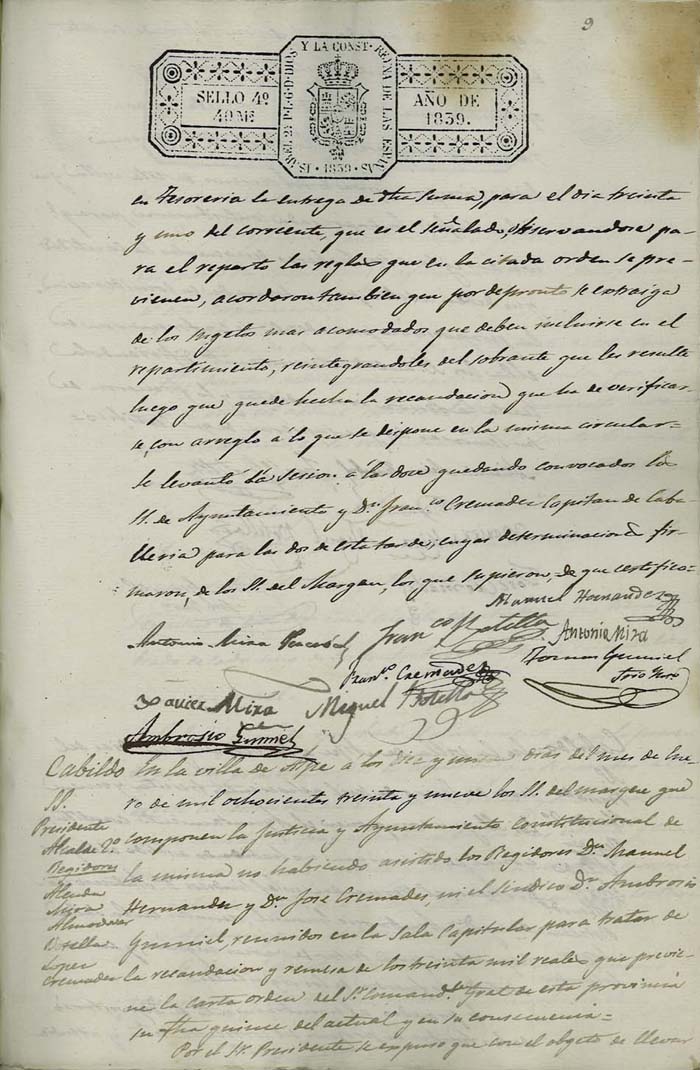 9
ISABEL 2ª P.L.G.D.DIOS Y LA CONST. REYNA DE LAS ESPAÑAS
SELLO 4º
40 MS
AÑO DE
1839.
1839
en Tesoreria la entrega de dha suma, para el dia treinta
y uno del corriente, que es el señalado, observandose pa-
ra el reparto las reglas que en la citada orden se pre-
vienen, acordaron tambien que por de pronto se extraiga
de los sugetos mas acomodados que deben incluirse en el
repartimiento, reintegrandoles del sobrante que les resulte
luego que quede hecha la recaudacion que ha de verificar-
se, con arreglo á lo que se dispone en la misma circular=
Se levantó la Sesion á las doce quedando convocados los
SS. de Ayuntamiento y Dn. Franco Cremades Capitan de Caba
lleria para las dos de esta tarde, cuyas determinaciones fir-
maron, de los SS. del Margen, los que supieron, de que certifico=
Manuel Hernandez
Antonio Mira
Franco Botella
Antonio Mira
Franco. Cremades
Tomas Gumiel
Xavier Mira
Miguel Botella
Ambrosio Gumiel
Cabildo
En la villa de Aspe a los diez y nueve dias del mes de Ene
SS.
ro de mil ochocientos treinta y nueve los SS. del margen que
Presidente
Alcalde 2º
componen la Justicia y Ayuntamiento Constitucional de
Regidores
la misma no habiendo asistido los Regidores Dn. Manuel
Mira
Hernandez y Dn. José Cremades, ni el Sindico Dn. Ambrosio
Almodovar
Botella
Gumiel, reunidos en la Sala Capitular para tratar de
Lopez
Cremades
la recaudacion y remesa de los treinta mil reales que previe-
ne la carta orden del Sr. Comandte. Gral de esta provincia
su fha quince del actual y en su consecuencia=
Por el Sr. Presidente se expuso que con el objeto de llevar